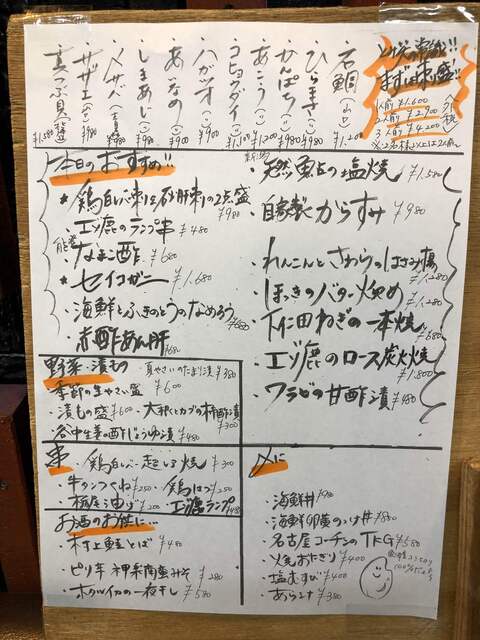 とりがい常備!!
まずは刺し盛!!
1人前 ¥1,600
2人前 ¥2,900
3人前 ¥4,200
石鯛 (〃) ¥1,200
ひらまさ (〃) ¥980
かんぱち (〃) ¥980
あこう (〃) ¥1,200
コショウダイ (〃) ¥1,100
ハガツオ (〃) ¥900
あいなめ (〃) ¥980
しまあじ (〃) ¥980
〆サバ
サザエ ¥980
真つぶ貝 ¥1,580
本日のおすすめ!!
★鶏白レバー刺しと砂肝刺しの2点盛 ¥980
・エゾ鹿のランプ串 ¥480
能登なまこ酢 ¥680
★セイコガニ ¥1,680
・海鮮とふきのとうのなめろう ¥680
・赤酢あん肝
・天然魚の塩焼 ¥1,580
・自家製からすみ ¥980
・れんこんとさわらのはさみ揚 ¥1,280
・ほっきのバター炒め ¥1,280
・下仁田ねぎの一本焼 ¥680
・エゾ鹿のロース炭火焼 ¥1,800
・ワラビの甘酢漬 ¥480
野菜・漬もの
・夏やさいのたまり漬 ¥380
季節の生やさい盛 ¥600
・漬もの盛 ¥600
・大根とカブの柿酢漬 ¥300
・谷中生姜の酢じょうゆ漬 ¥480
串
・鶏白レバー
焼 ¥300
・牛タンつくね ¥250
・鶏はつ ¥250
・栃尾油げ ¥200
・エゾ鹿ランプ ¥480
お酒のお供に…
・村上鮭とば ¥480
・ピリ辛
南蛮みそ ¥280
・ホタルイカの一夜干し ¥580
〆に
・海鮮丼
・海鮮卵黄のっけ丼 ¥880
・名古屋コーチンのTKG ¥580
・焼おにぎり ¥400
・塩むすび ¥400
・あら汁 ¥380